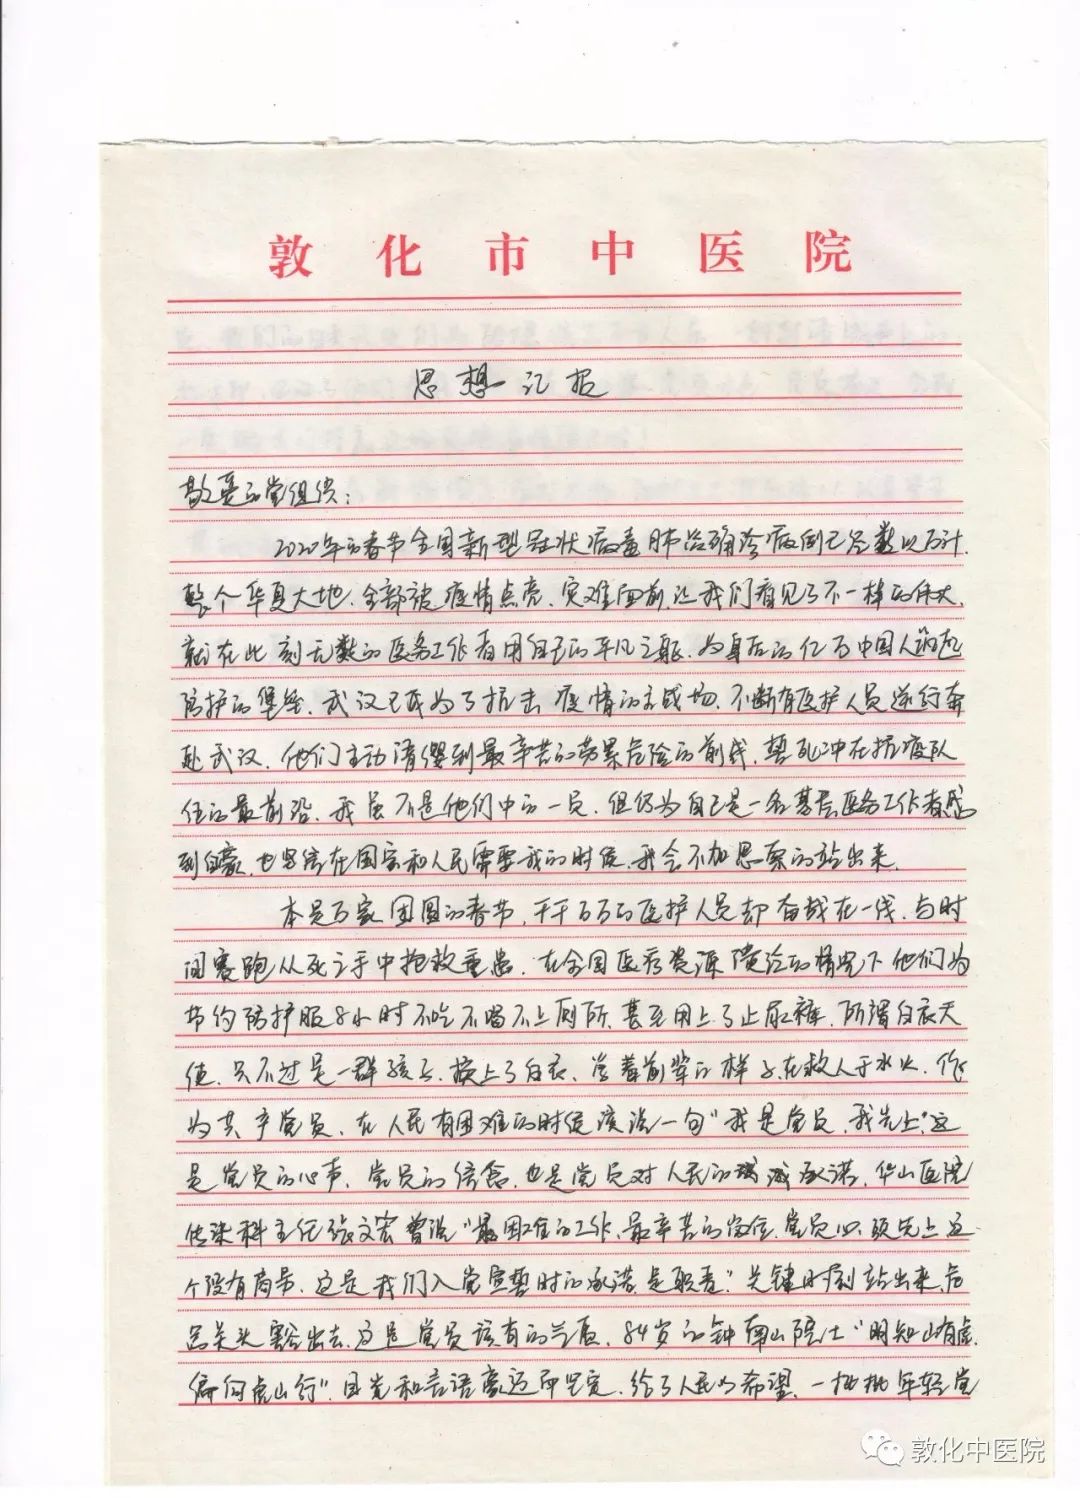 敦化市中医院
思想汇报
敬爱的党组织：
2020年的春节全国新型冠状病毒肺炎确诊病例已是数以万计.
整个华夏大地.全部被疫情点亮.灾难面前,让我们看见了不一样的伟大.
就在此刻无数的医务工作者用自己的平凡之躯.为身后的亿万中国人筑起
防护的堡垒.武汉已成为了抗击疫情的主战场.不断有医护人员逆行奔
赴武汉.他们主动请缨到最辛苦的劳累危险的前线.誓死冲在抗疫队
伍的最前沿.我虽不是他们中的一员.但仍为自己是一名基层医务工作者感
到自豪.也坚信在国家和人民需要我的时候.我会不加思索的站出来.
本是万家团圆的春节,千千万万的医护人员却奋战在一线.与时
间赛跑从死亡手中抢救重患.在全国医疗资源 的情况下他们为
节约防护服8小时不吃不喝不上厕所.甚至用上了止尿裤.所谓白衣天
使.只不过是一群孩子.换上了白衣.学着前辈的样子.在救人于水火.作
为共产党员.在人民有困难的时候该说一句"我是党员.我先上."这
是党员的心声.党员的信念.也是党员对人民的 承诺.华山医院
传染科主任张文宏曾说"最困难的工作.最辛苦的岗位.党员必须先上.这
个没有商量.这是我们入党宣誓时的承诺.是职责."关键时刻站出来.危
急关头豁出去.这是党员该有的 .84岁的钟南山院士"明知山有虎.
偏向虎山行".目光和言语豪迈而坚定.给了人民以希望.一批批年轻党
敦化中医院